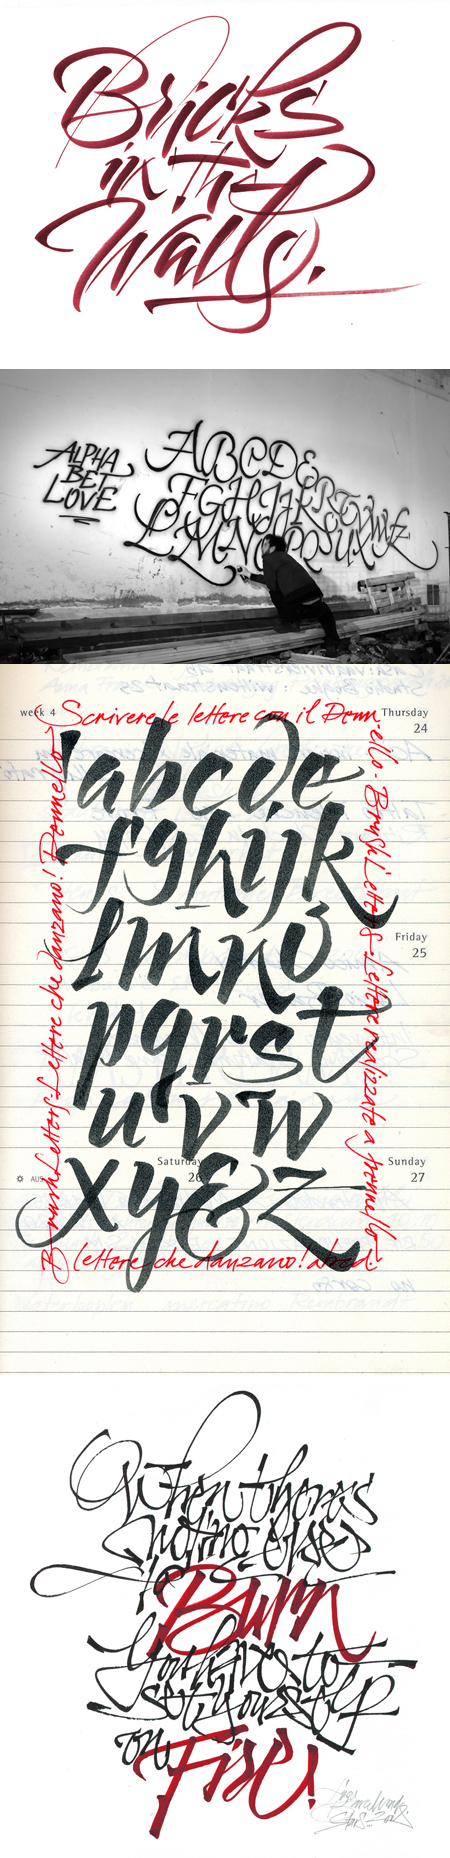 Bricks
in the
Walls.
ALPHA
BET
LOVE
ABCDE
week 4
Thursday
24
Scrivere le lettere con il Penn-
ello - Brush Letters - Lettere realizzate a pennello
Brush Letters - Lettere che danzano! Pennello
abcde
fghijk
lmno
pqrst
uvw
xy&z
Friday
25
Saturday
26
Sunday
27
lettere che danzano!
When theres
noting else
to
Burn
You haves to
set yourself
on
Fire!